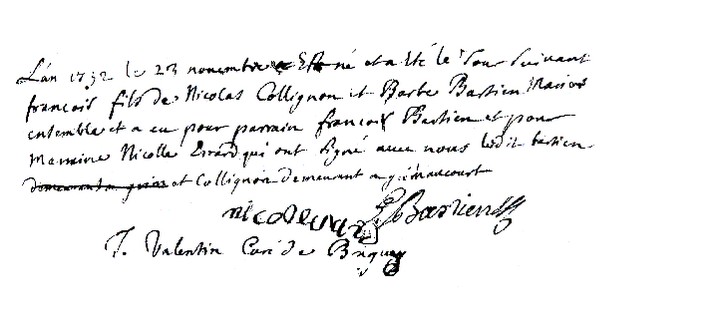 L'an 1732 le 23 novembre Est né et a Eté le Jour suivant
francois fils de Nicolas Collignon et Barbe Bastien Mariés
ensemble et a eu pour parrain francois Bastien et pour
Marraine Nicolle Errard qui ont signé avec nous ledit bastien
et Collignon demeurant a
F Bastien
J. Valentin Curé de